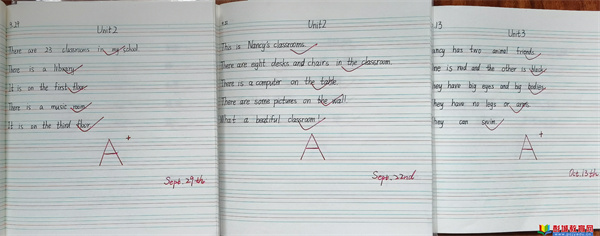 9.29
Unit2
There are 23 classrooms in my school
There is a library
It is on the first floor
There is a music room
It is on the third floor
A+
Sept. 29th
Unit2
This is Nancy's classrooms.
There are eight desks and chairs in the classroom.
There is a computer on the table.
There are some pictures on the wall.
What a beatiful classroom!
A
Sept. 22nd
.13
Unit3
ancy has two animal friends.
ne is red and the other is black.
hey have big eyes and big bodies.
hey have no legs or arms.
hey can swim.
A+
Oct. 13th